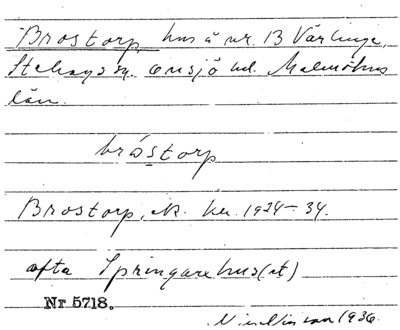 Brostorp, hus å nr. 13 Värlinge,
Stehags sn. Onsjö hd. Malmöhus
län.
bråstorp
Brostorp, ik. ku. 1924-34.
ofta Springarehus(et)
Nr 5718.
1936.